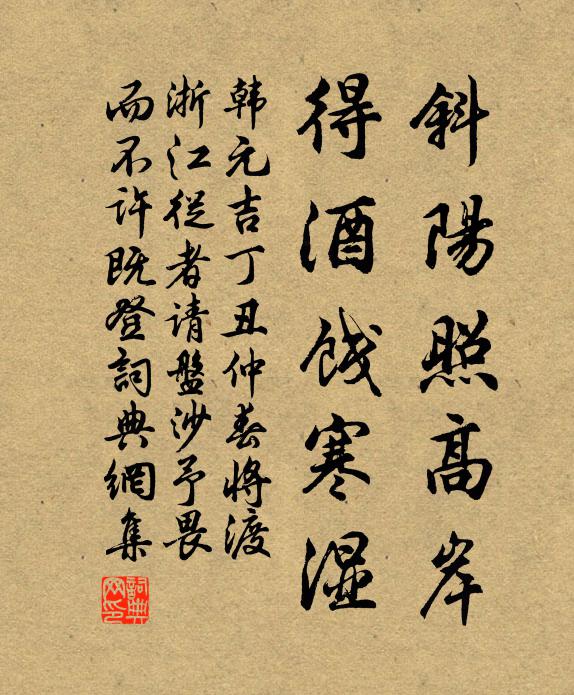 斜陽照高岸
得酒餞寒溼
韩元吉丁丑仲春將渡
浙江從者请盤沙予畏
而不许既登詞典網集
詞典网印